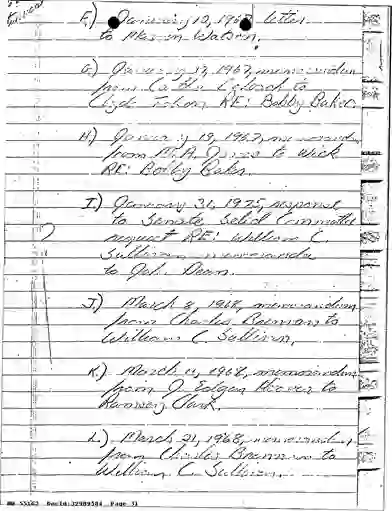 F.) January 10, 1967 letter
to Marvin Watson.
G.) January 17, 1967, memorandum
from Cartha DeLoach to
Clyde Tolson RE: Bobby Baker.
H.) January 19, 1967, memorandum
from M.A. Jones to Wick
RE: Bobby Baker.
I) January 31, 1975, response
to Senate Select Committee
request RE: William C.
Sullivan memoranda
to John Dean.
?
J) March 8, 1968, memorandum
from Charles Brennan to
William C. Sullivan.
K.) March 11, 1968, memorandum
from J. Edgar Hoover to
Ramsey Clark.
L.) March 21, 1968, memorandum
from Charles Brennan to
William C. Sullivan.
DocId:32989584 Page 31